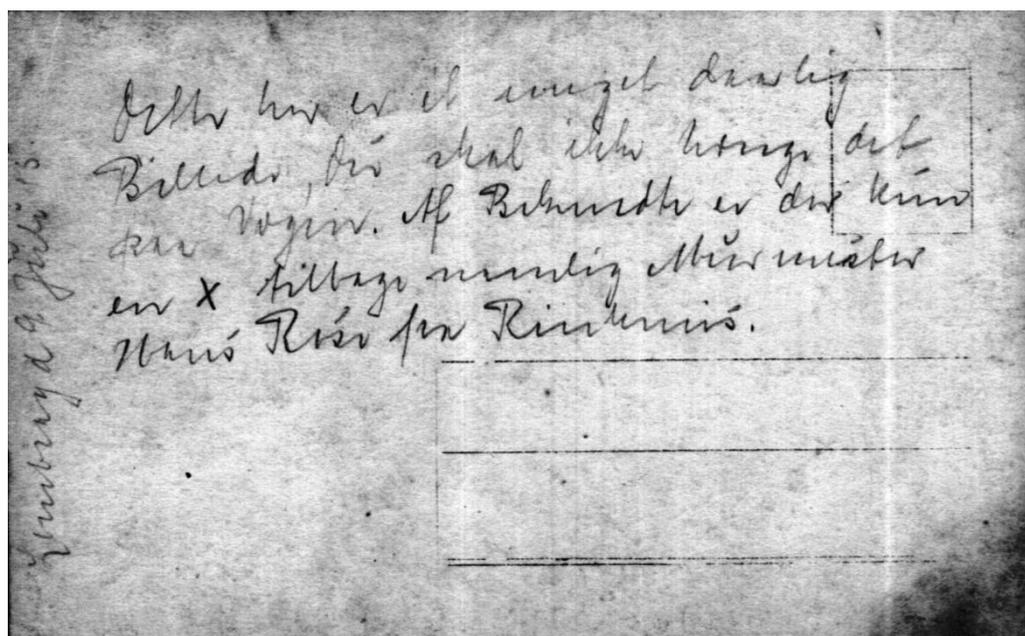 Dette her er et meget daarlig
Billede, Du skal ikke hænge det
paa Vægen. Af Bekendte er der kun
en x tilbage nemlig Murmester
Hans Rose fra Rinkenis.
d 9 Juli 15.